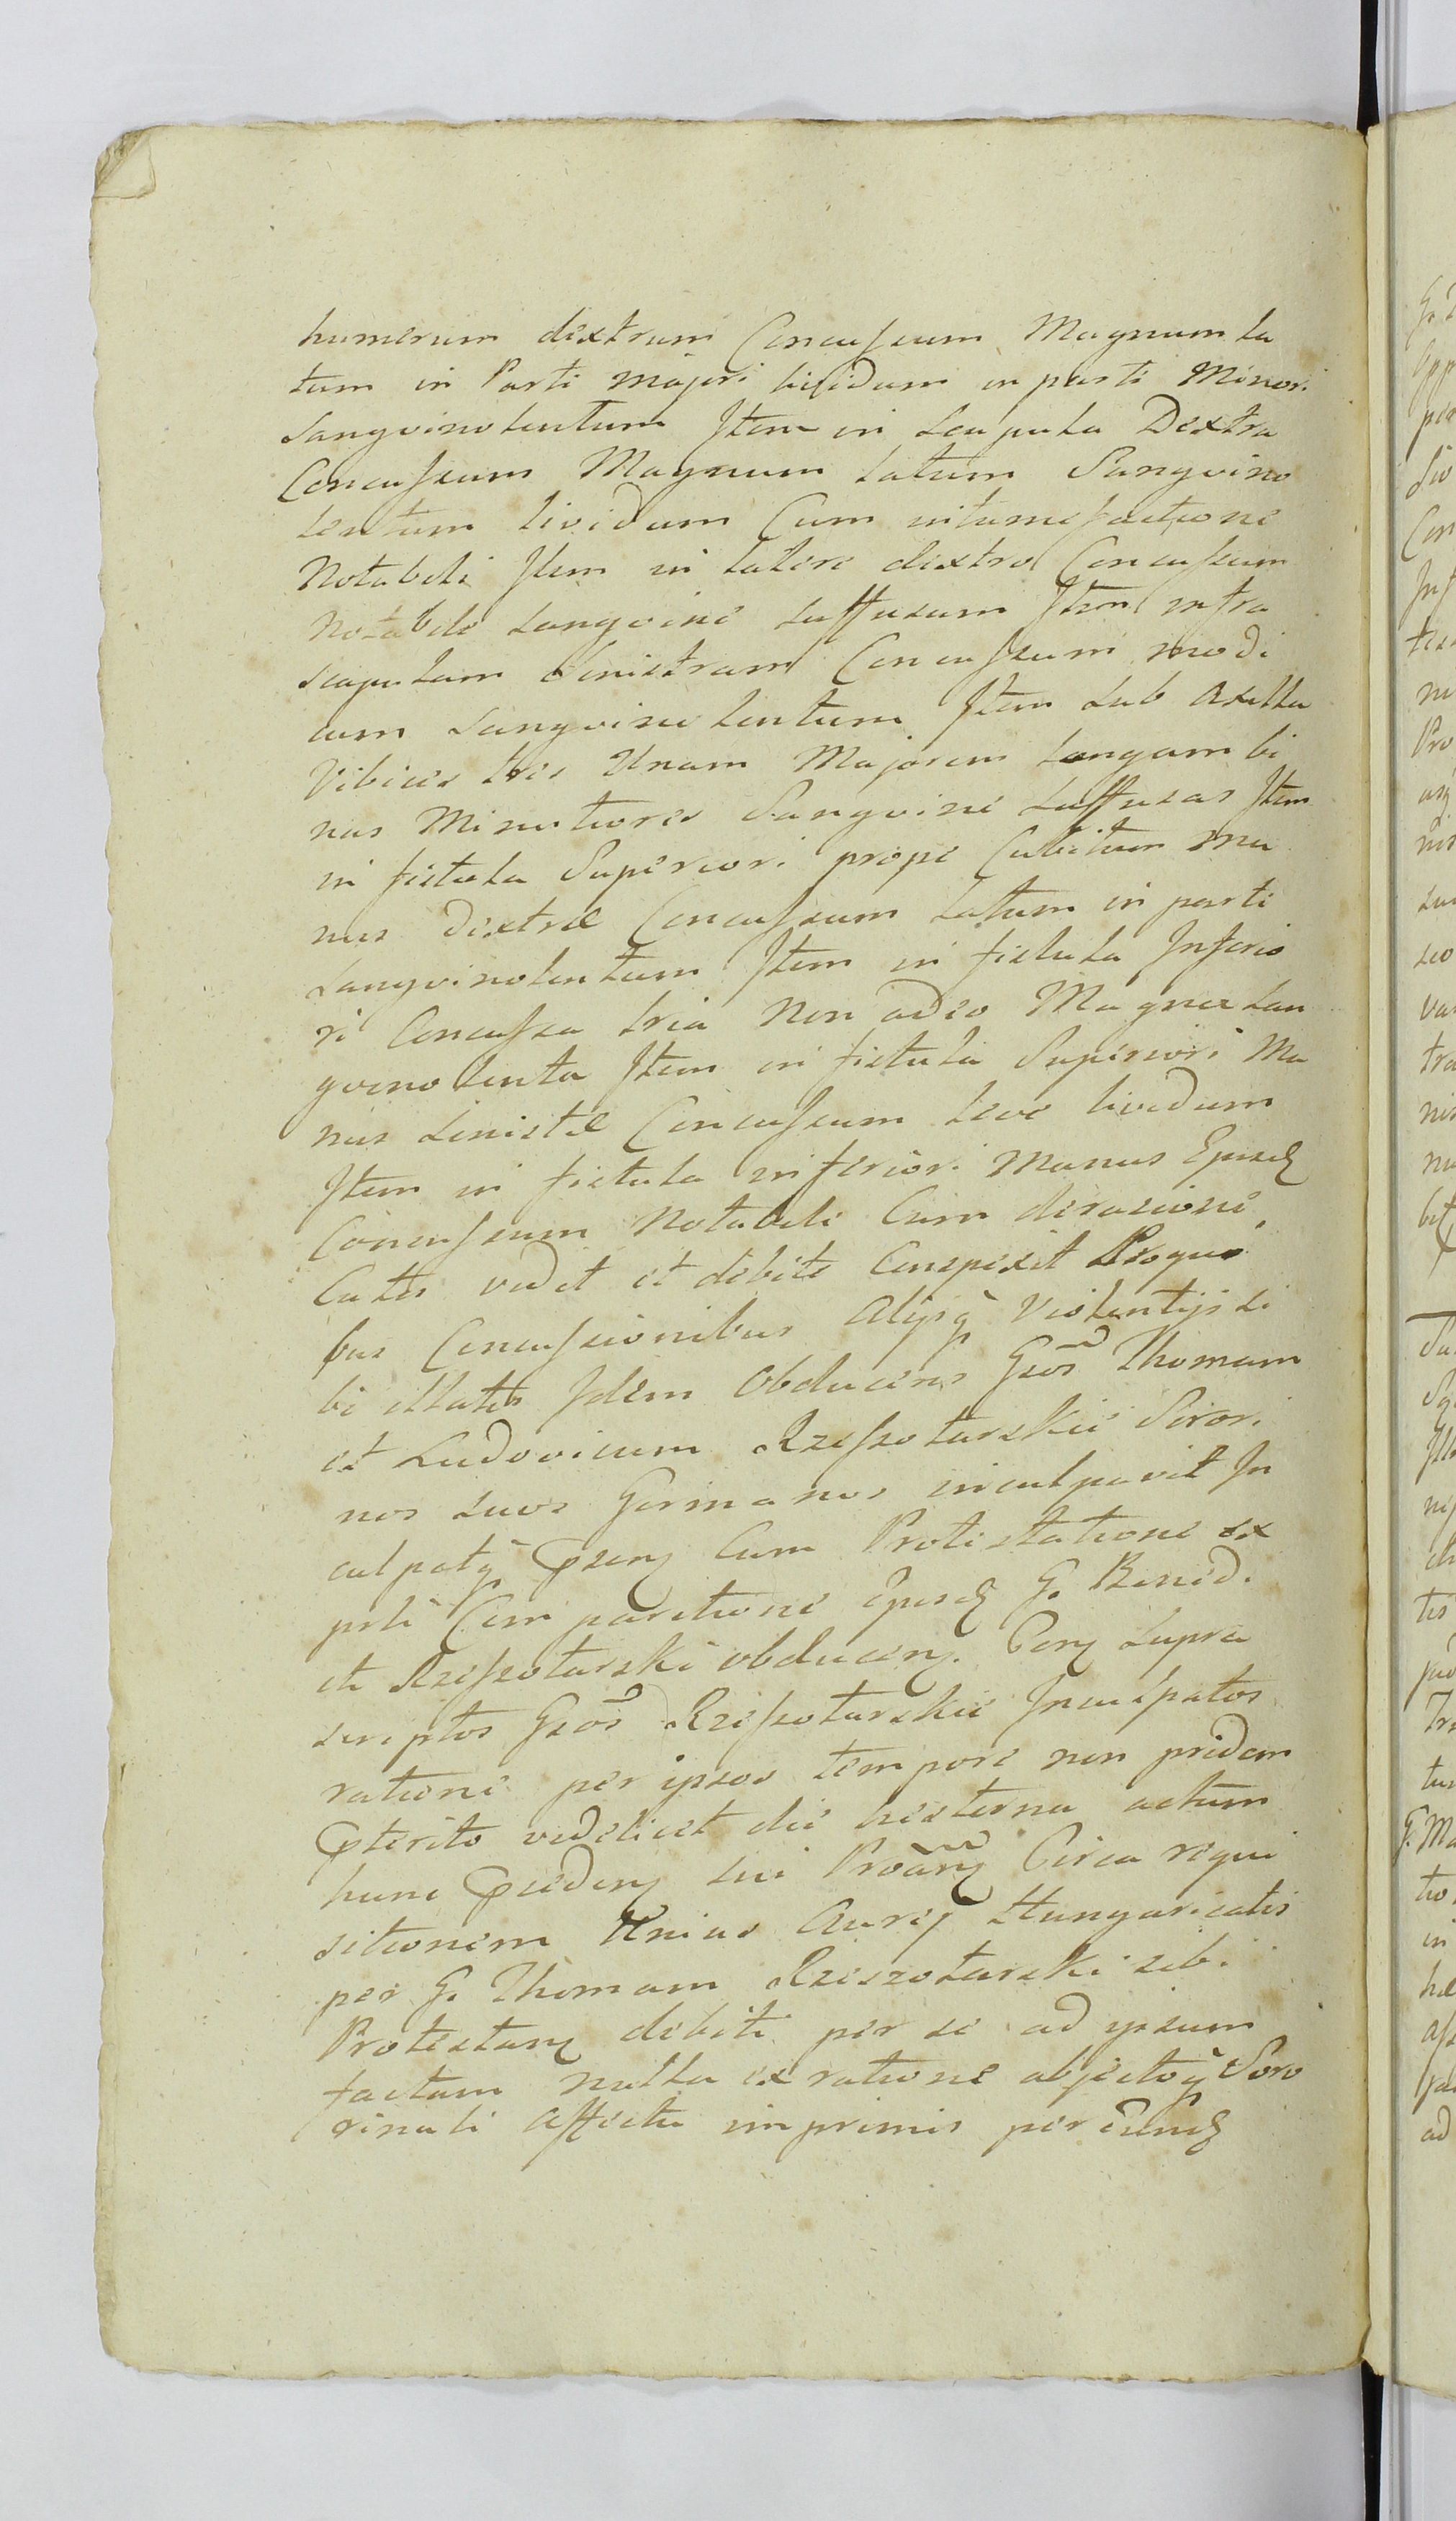 humerum dextrum Concussum Magnum la
tum in Parte majori lividum in parte Minori
Sangvinolentum Item in Scapula Dextra
Concussum Magnum latum Sangvino
lentum lividum Cum intumefactione
Notabili Item in latere dextro Concussum
notabile sangvine suffusum Item infra
scapulam sinistram Concussum modi
cum sangvinolentum Item sub axilla
Vibices tres Unam Majorem longam bi
nas Minutiores Sangvine suffusas Item
in fistula Superiori prope Cubitum ma
nus dextræ Concussum latum in parte
sangvinolentum Item in fistula Inferio
ri Concussa tria non adeo Magna san
gvinolenta Item in fistula Superiori Ma
nus sinistræ Concussum leve lividum
Item in fistula inferiori Manus
Concussum Notabile Cum derasione
Cutis vidit et debite Conspexit Proqui
bus Concussionibus Alijsq Violentijs si
bi illatis Idem Obducens Gsos Thomam
et Ludovicum Rzeszotarskie Sorori
nos suos Germanos inculpavit In
culpatq Cum Protestatione ex
Comparitione G. Bened.
cti Rzeszotarski obducen. supra
scriptos Gsos Rzeszotarskie Inculpatos
ratione per ipsos tempore non pridem
pterito videlicet die hesterna actum
hunc sui Circa requi
sitionem Unius Aurej Hungaricalis
per G. Thomam Rzeszotarski sibi
debiti per se ad ipsum
factam nulla ex ratione abjectoq Soro
rinali affectu imprimis per